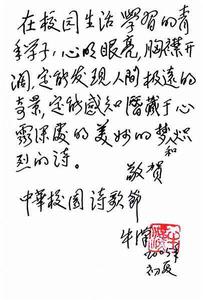 在校园生活学习的青
年学子，心明眼亮，胸襟开
阔，定能发现人间极远的
奇景，定能感知潜藏于心
灵深处的美妙的梦和炽
烈的诗。
敬贺
中華校园诗歌節
牛漢
2005年
初夏